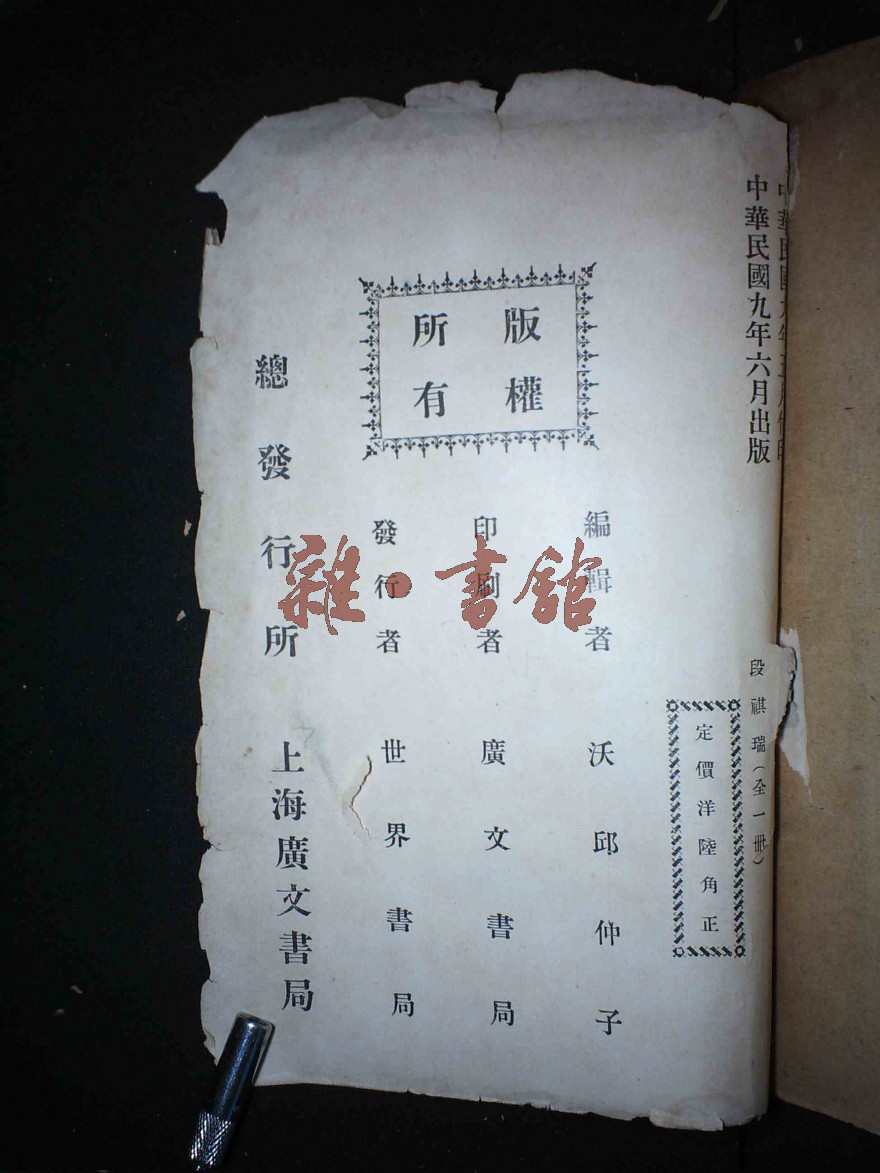 中華民國九年六月出版
段祺瑞（全一冊）
定價洋陸角正
版權
所有
編輯者 沃邱仲子
印刷者 廣文書局
發行者 世界書局
總發行所 上海廣文書局
雜·書館